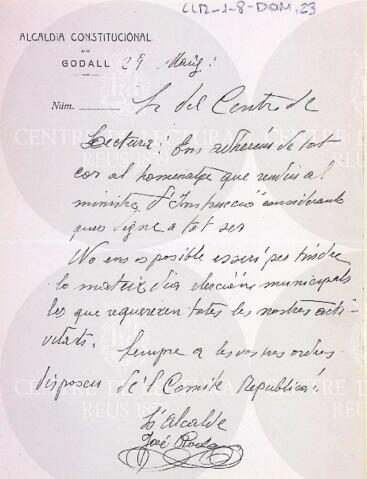 CLR-1-8-DOM.23
ALCALDIA CONSTITUCIONAL
DE
GODALL 29 Maig:
Núm.
Sr del Centre de
Lectura: Ens adherim de tot
cor al homenatge que rendiu al
ministre d'Instrucció considerante
ques digne a tot ser
No ens es posible esserhi per tindre
lo mateix dia eleccións municipals
les que requereixen totes les nostres acti-
vitats. Sempre a les vostres ordres
disposeu de'l Comité Republicá.
L'Alcalde
José Roda
CENTRE DE LECTURA
REUS 1859